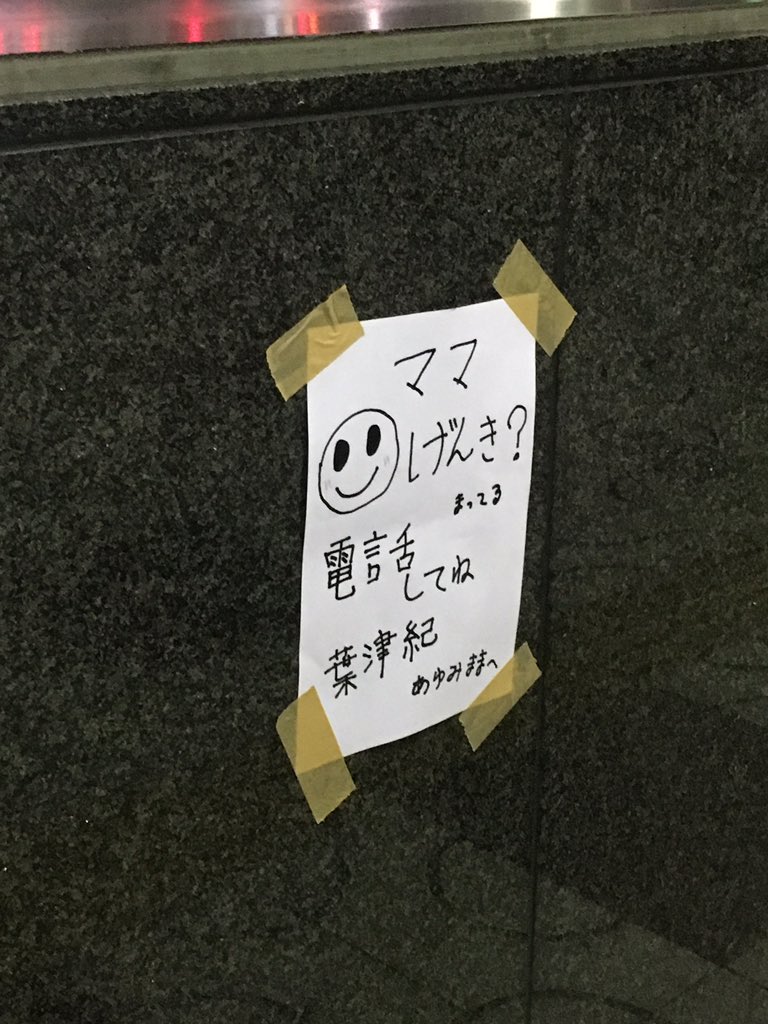 ママ
げんき?
まってる
電話してね
葉津紀
あゆみままへ